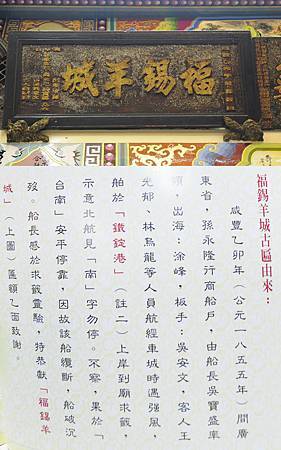 福錫羊城
福錫羊城古匾由來：
咸豐乙卯年（公元一八五五年）間廣
東省，孫永隆行商船戶，由船長吳寶盛率
領，出海：涂峰，板手：吳安文，客人王
光郁、林烏龍等人員航經車城時遇強風，
舶於「鐵錠港」（註二）上岸到廟求籤，
示意北航見「南」字勿停。不察，果於「
台南」安平停靠，因故該船纜斷，船破沉
歿。船長感於求籤靈驗，特恭獻「福錫羊
城」（上圖）匾額乙面致謝。